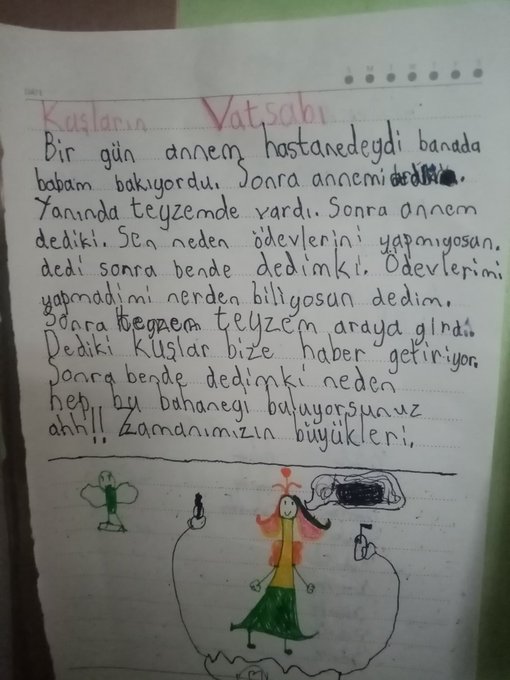 Kuşların Vatsabı
Bir gün annem hastanedeydi banada
babam bakıyordu. Sonra annemi aradık.
Yanında teyzemde vardı. Sonra annem
dediki. Sen neden ödevlerini yapmıyosan.
dedi sonra bende dedimki. Ödevlerimi
yapmadimi nerden biliyosan dedim.
Sonra teyzem araya girdi.
Dediki kuşlar bize haber getiriyor.
Sonra bende dedimki neden
hep bu bahaneyi buluyorsunuz
ahh!! Zamanımızın büyükleri.